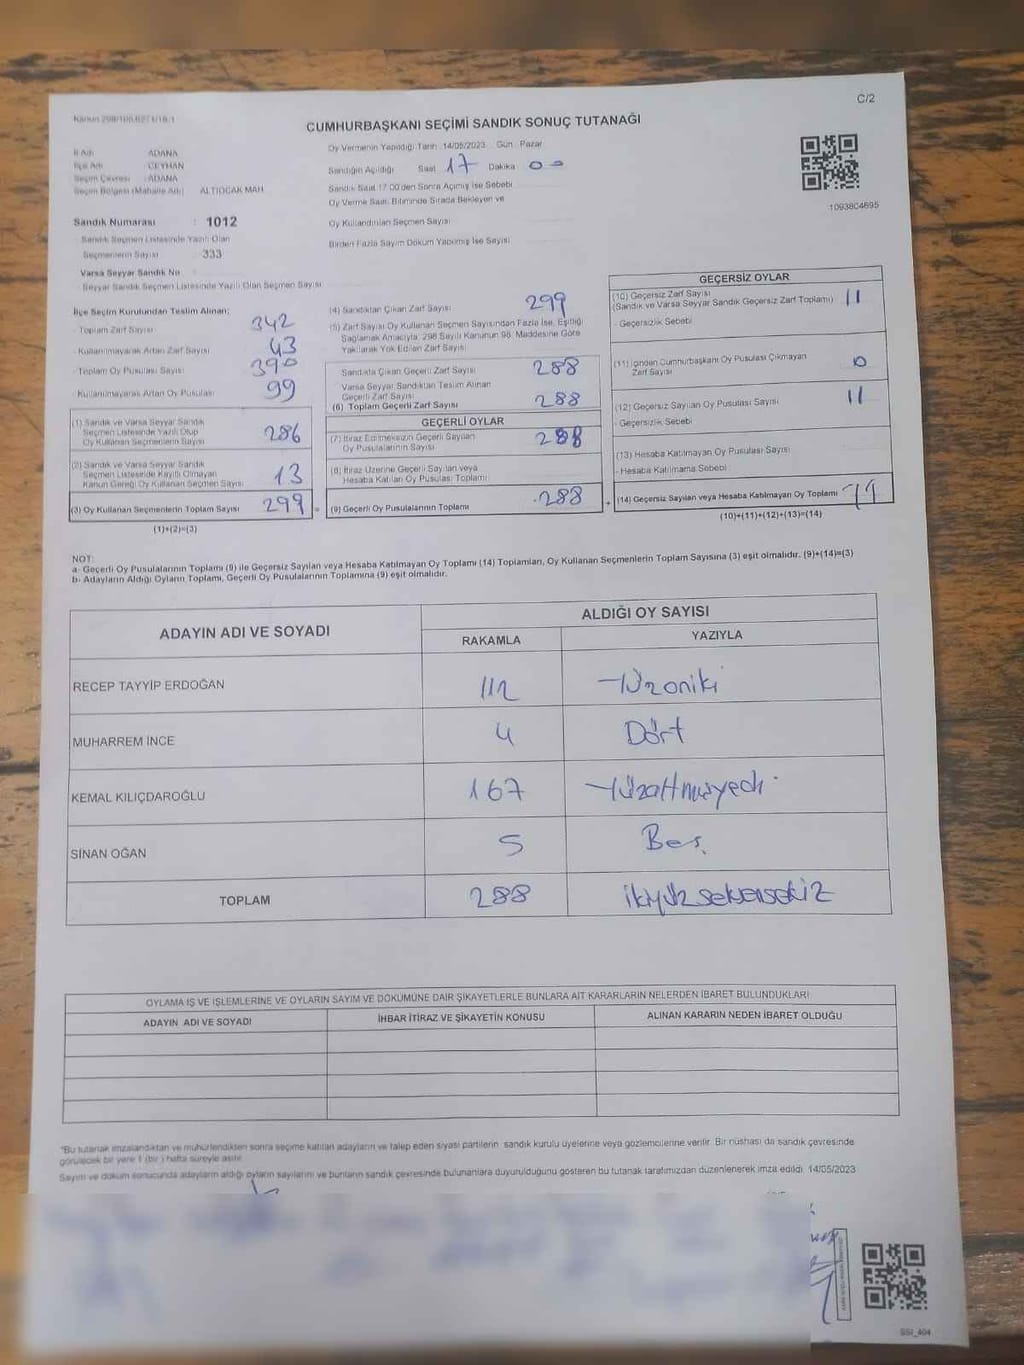 C/2
CUMHURBAŞKANI SEÇİMİ SANDIK SONUÇ TUTANAĞI
İl Adı : ADANA
İlçe Adı : CEYHAN
Seçim Çevresi : ADANA
Seçim Bölgesi (Mahalle Adı) : ALTIOCAK MAH.
Sandık Numarası : 1012
Sandık Seçmen Listesinde Yazılı Olan
Seçmenlerin Sayısı : 333
Varsa Seyyar Sandık No :
Seyyar Sandık Seçmen Listesinde Yazılı Olan Seçmen Sayısı :
Oy Vermenin Yapıldığı Tarih : 14/05/2023 Gün : Pazar
Sandığın Açıldığı Saat 17 Dakika 00
Sandık Saat 17.00'den Sonra Açılmış İse Sebebi
Oy Verme Saati Bitiminde Sırada Bekleyen ve
Oy Kullandırılan Seçmen Sayısı
Birden Fazla Sayım Döküm Yapılmış İse Sayısı
1093804695
İlçe Seçim Kurulundan Teslim Alınan;
- Toplam Zarf Sayısı 342
- Kullanılmayarak Artan Zarf Sayısı 43
- Toplam Oy Pusulası Sayısı 390
- Kullanılmayarak Artan Oy Pusulası 99
(1) Sandık ve Varsa Seyyar Sandık
Seçmen Listesinde Yazılı Olup
Oy Kullanan Seçmenlerin Sayısı 286
(2) Sandık ve Varsa Seyyar Sandık
Seçmen Listesinde Kayıtlı Olmayan
Kanun Gereği Oy Kullanan Seçmen Sayısı 13
(3) Oy Kullanan Seçmenlerin Toplam Sayısı 299 =
(1)+(2)=(3)
(4) Sandıktan Çıkan Zarf Sayısı 299
(5) Zarf Sayısı Oy Kullanan Seçmen Sayısından Fazla İse, Eşitliği
Sağlamak Amacıyla, 298 Sayılı Kanunun 98. Maddesine Göre
Yakılarak Yok Edilen Zarf Sayısı
Sandıkta Çıkan Geçerli Zarf Sayısı 288
Varsa Seyyar Sandıktan Teslim Alınan
Geçerli Zarf Sayısı
(6) Toplam Geçerli Zarf Sayısı 288
GEÇERLİ OYLAR
(7) İtiraz Edilmeksizin Geçerli Sayılan
Oy Pusulalarının Sayısı 288
(8) İtiraz Üzerine Geçerli Sayılan veya
Hesaba Katılan Oy Pusulası Toplamı
(9) Geçerli Oy Pusulalarının Toplamı 288 +
GEÇERSİZ OYLAR
(10) Geçersiz Zarf Sayısı
(Sandık ve Varsa Seyyar Sandık Geçersiz Zarf Toplamı) 11
- Geçersizlik Sebebi
(11) İçinden Cumhurbaşkanı Oy Pusulası Çıkmayan
Zarf Sayısı 0
(12) Geçersiz Sayılan Oy Pusulası Sayısı 11
- Geçersizlik Sebebi
(13) Hesaba Katılmayan Oy Pusulası Sayısı
- Hesaba Katılmama Sebebi
(14) Geçersiz Sayılan veya Hesaba Katılmayan Oy Toplamı
(10)+(11)+(12)+(13)=(14)
NOT:
a- Geçerli Oy Pusulalarının Toplamı (9) ile Geçersiz Sayılan veya Hesaba Katılmayan Oy Toplamı (14) Toplamları, Oy Kullanan Seçmenlerin Toplam Sayısına (3) eşit olmalıdır. (9)+(14)=(3)
b- Adayların Aldığı Oyların Toplamı, Geçerli Oy Pusulalarının Toplamına (9) eşit olmalıdır.
ADAYIN ADI VE SOYADI ALDIĞI OY SAYISI
RAKAMLA YAZIYLA
RECEP TAYYİP ERDOĞAN 112 Yüzoniki
MUHARREM İNCE 4 Dört
KEMAL KILIÇDAROĞLU 167 Yüzaltmışyedi
SİNAN OĞAN 5 Beş
TOPLAM 288 ikiyüzseksensekiz
OYLAMA İŞ VE İŞLEMLERİNE VE OYLARIN SAYIM VE DÖKÜMÜNE DAİR ŞİKAYETLERLE BUNLARA AİT KARARLARIN NELERDEN İBARET BULUNDUKLARI
ADAYIN ADI VE SOYADI İHBAR İTİRAZ VE ŞİKAYETİN KONUSU ALINAN KARARIN NEDEN İBARET OLDUĞU
*Bu tutanak imzalandıktan ve mühürlendikten sonra seçime katılan adayların ve talep eden siyasi partilerin sandık kurulu üyelerine veya gözlemcilerine verilir. Bir nüshası da sandık çevresinde
görülecek bir yere 1 (bir) hafta süreyle asılır.
Sayım ve döküm sonucunda adayların aldığı oyların sayılarını ve bunların sandık çevresinde bulunanlara duyurulduğunu gösteren bu tutanak tarafımızdan düzenlenerek imza edildi. 14/05/2023
SSI_404